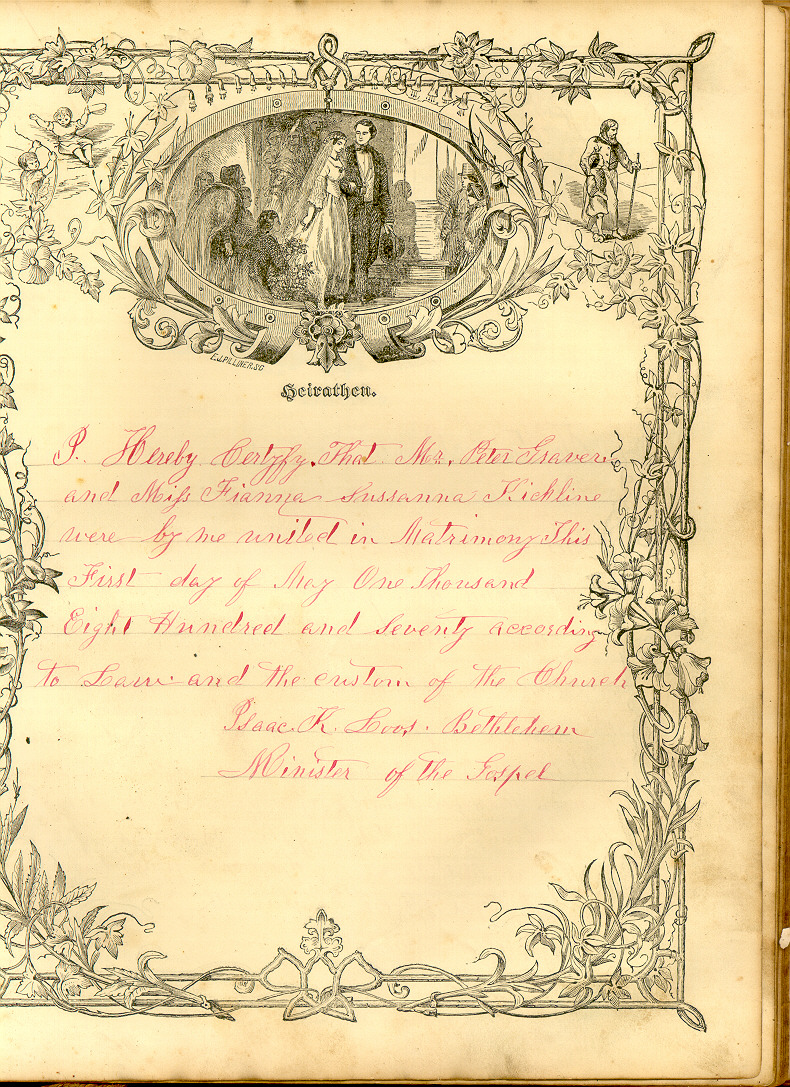 E.J.PILLINER.SC
Heirathen.
I. Hereby Certyfy. That Mr. Peter Graver
and Miss Fianna Sussanna Kichline
were by me united in Matrimony This
First day of May One Thousand
Eight Hundred and Seventy according
to Law and the custom of the Church
Isaac. K. Loos. Bethlehem
Minister of the Gospel